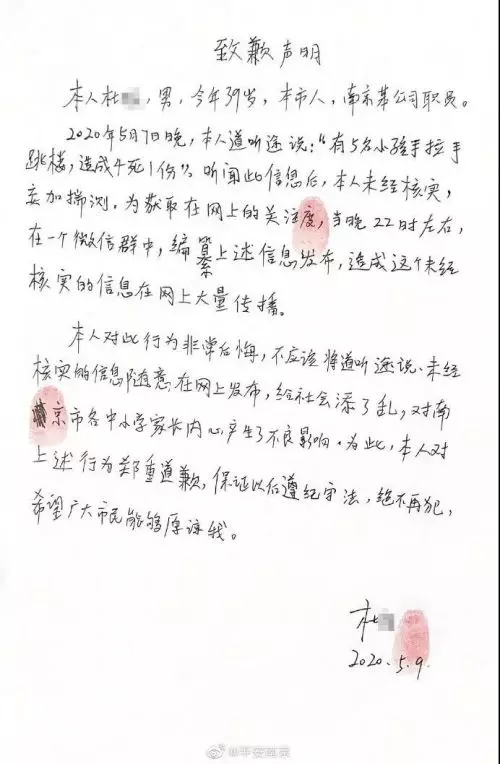 致歉声明
本人杜，男，今年39岁，本市人，南京某公司职员。
2020年5月7日晚，本人道听途说："有5名小孩手拉手
跳楼，造成4死1伤"。听闻此信息后，本人未经核实，
妄加揣测。为获取在网上的关注度，当晚22时左右，
在一个微信群中，编纂上述信息发布，造成这个未经
核实的信息在网上大量传播。
本人对此行为非常后悔，不应该将道听途说、未经
核实的信息随意在网上发布，给社会添了乱，对南
京市各中小学家长内心产生了不良影响。为此，本人对
上述行为郑重道歉，保证以后遵纪守法，绝不再犯，
希望广大市民能够原谅我。
杜
2020.5.9
@平安南京